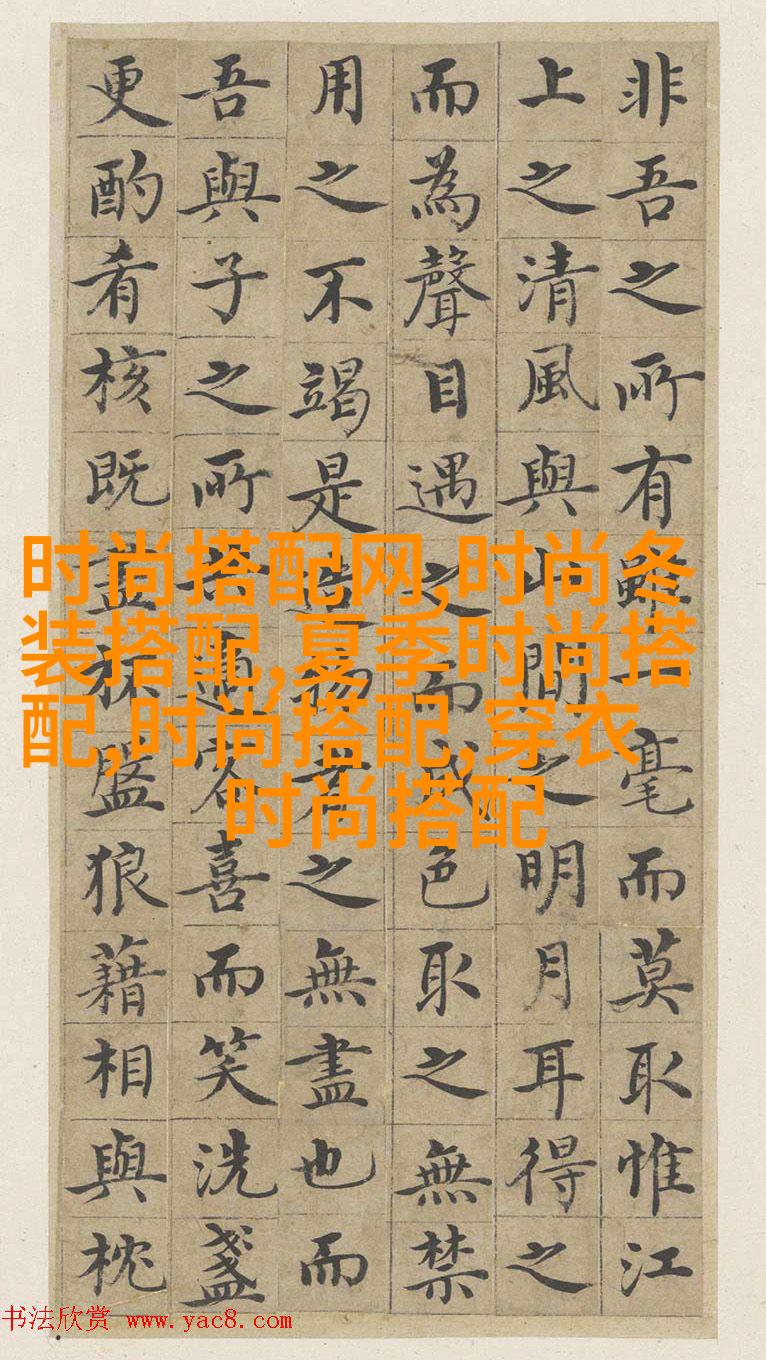 非吾之所有雖一毫而莫取惟江
上之清風與山間之明月耳得之
而為聲目遇之而成色取之無禁
用之不竭是造物者之無盡也而
吾與子之所適客喜而笑洗盞
更酌肴核既盡杯盤狼藉相與枕
时尚搭配网,时尚冬
装搭配,夏季时尚搭
配,时尚搭配,穿衣
时尚搭配
书法欣赏 www.yac8.com